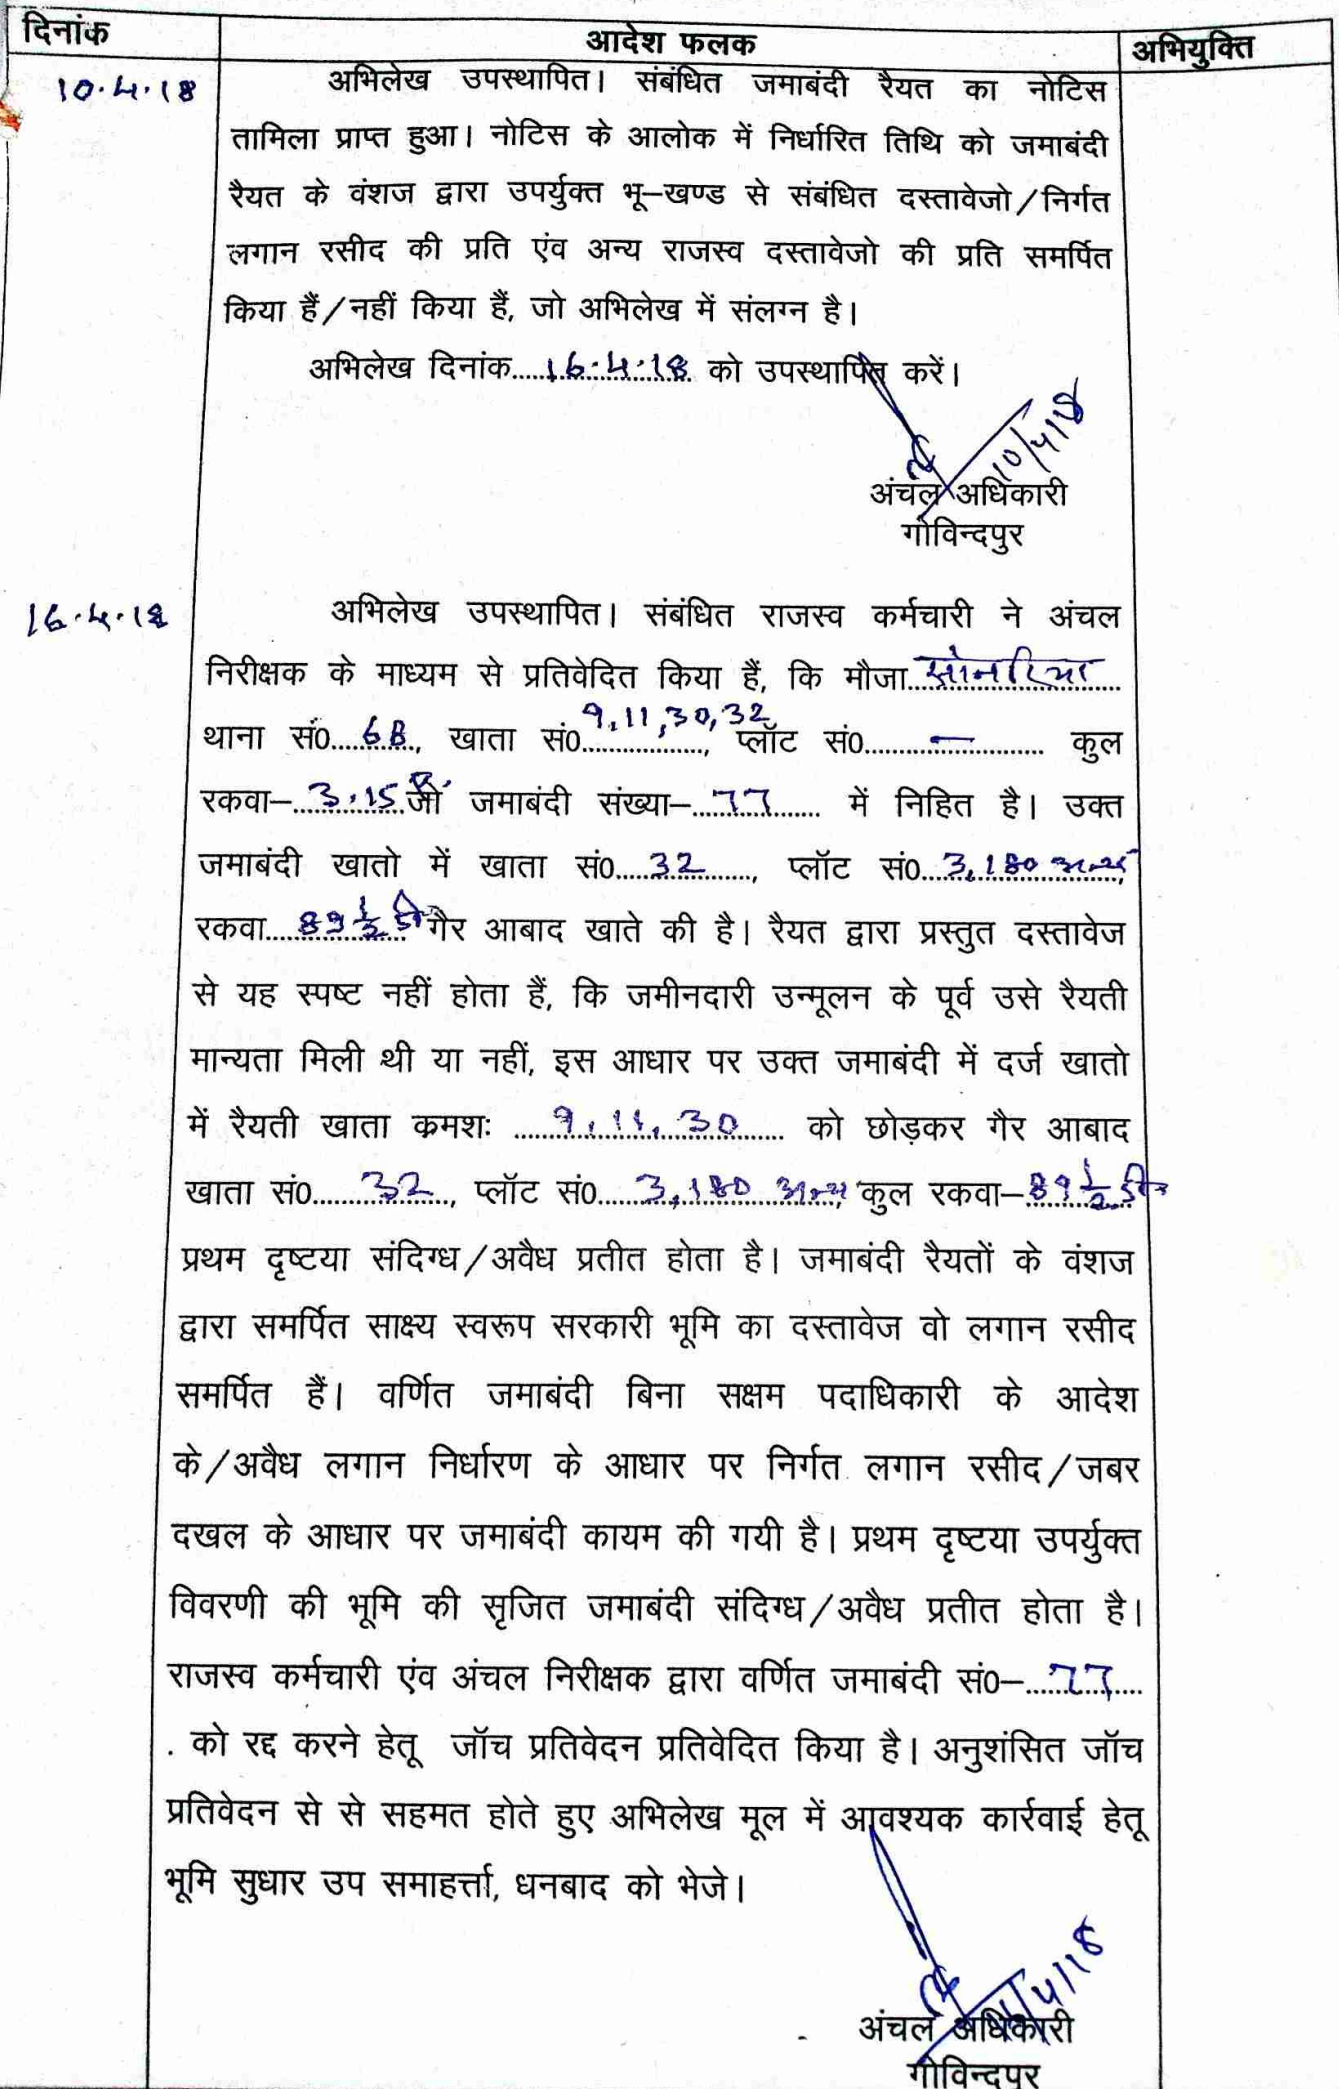 दिनांक आदेश फलक अभियुक्ति
10.4.18 अभिलेख उपस्थापित। संबंधित जमाबंदी रैयत का नोटिस
तामिला प्राप्त हुआ। नोटिस के आलोक में निर्धारित तिथि को जमाबंदी
रैयत के वंशज द्वारा उपर्युक्त भू–खण्ड से संबंधित दस्तावेजो/निर्गत
लगान रसीद की प्रति एंव अन्य राजस्व दस्तावेजो की प्रति समर्पित
किया हैं/नहीं किया हैं, जो अभिलेख में संलग्न है।
अभिलेख दिनांक....16.4.18.... को उपस्थापित करें।
10/4/18
अंचल अधिकारी
गोविन्दपुर
16.4.18 अभिलेख उपस्थापित। संबंधित राजस्व कर्मचारी ने अंचल
निरीक्षक के माध्यम से प्रतिवेदित किया हैं, कि मौजा..सोनारिया
थाना सं0....68..., खाता सं0..9,11,30,32.., प्लॉट सं0.......–....... कुल
रकवा–..3.15..जो जमाबंदी संख्या–..77...... में निहित है। उक्त
जमाबंदी खातो में खाता सं0....32....., प्लॉट सं0..3,180 अन्य,
रकवा...89½ डी० गैर आबाद खाते की है। रैयत द्वारा प्रस्तुत दस्तावेज
से यह स्पष्ट नहीं होता हैं, कि जमीनदारी उन्मूलन के पूर्व उसे रैयती
मान्यता मिली थी या नहीं, इस आधार पर उक्त जमाबंदी में दर्ज खातो
में रैयती खाता क्रमशः ....9,11,30..... को छोड़कर गैर आबाद
खाता सं0.....32...., प्लॉट सं0....3,180 अन्य, कुल रकवा–89½ डी०
प्रथम दृष्टया संदिग्ध/अवैध प्रतीत होता है। जमाबंदी रैयतों के वंशज
द्वारा समर्पित साक्ष्य स्वरूप सरकारी भूमि का दस्तावेज वो लगान रसीद
समर्पित हैं। वर्णित जमाबंदी बिना सक्षम पदाधिकारी के आदेश
के/अवैध लगान निर्धारण के आधार पर निर्गत लगान रसीद/जबर
दखल के आधार पर जमाबंदी कायम की गयी है। प्रथम दृष्टया उपर्युक्त
विवरणी की भूमि की सृजित जमाबंदी संदिग्ध/अवैध प्रतीत होता है।
राजस्व कर्मचारी एंव अंचल निरीक्षक द्वारा वर्णित जमाबंदी सं0–...77...
. को रद्द करने हेतू जॉच प्रतिवेदन प्रतिवेदित किया है। अनुशंसित जॉच
प्रतिवेदन से से सहमत होते हुए अभिलेख मूल में आवश्यक कार्रवाई हेतू
भूमि सुधार उप समाहर्त्ता, धनबाद को भेजे।
अंचल अधिकारी
गोविन्दपुर